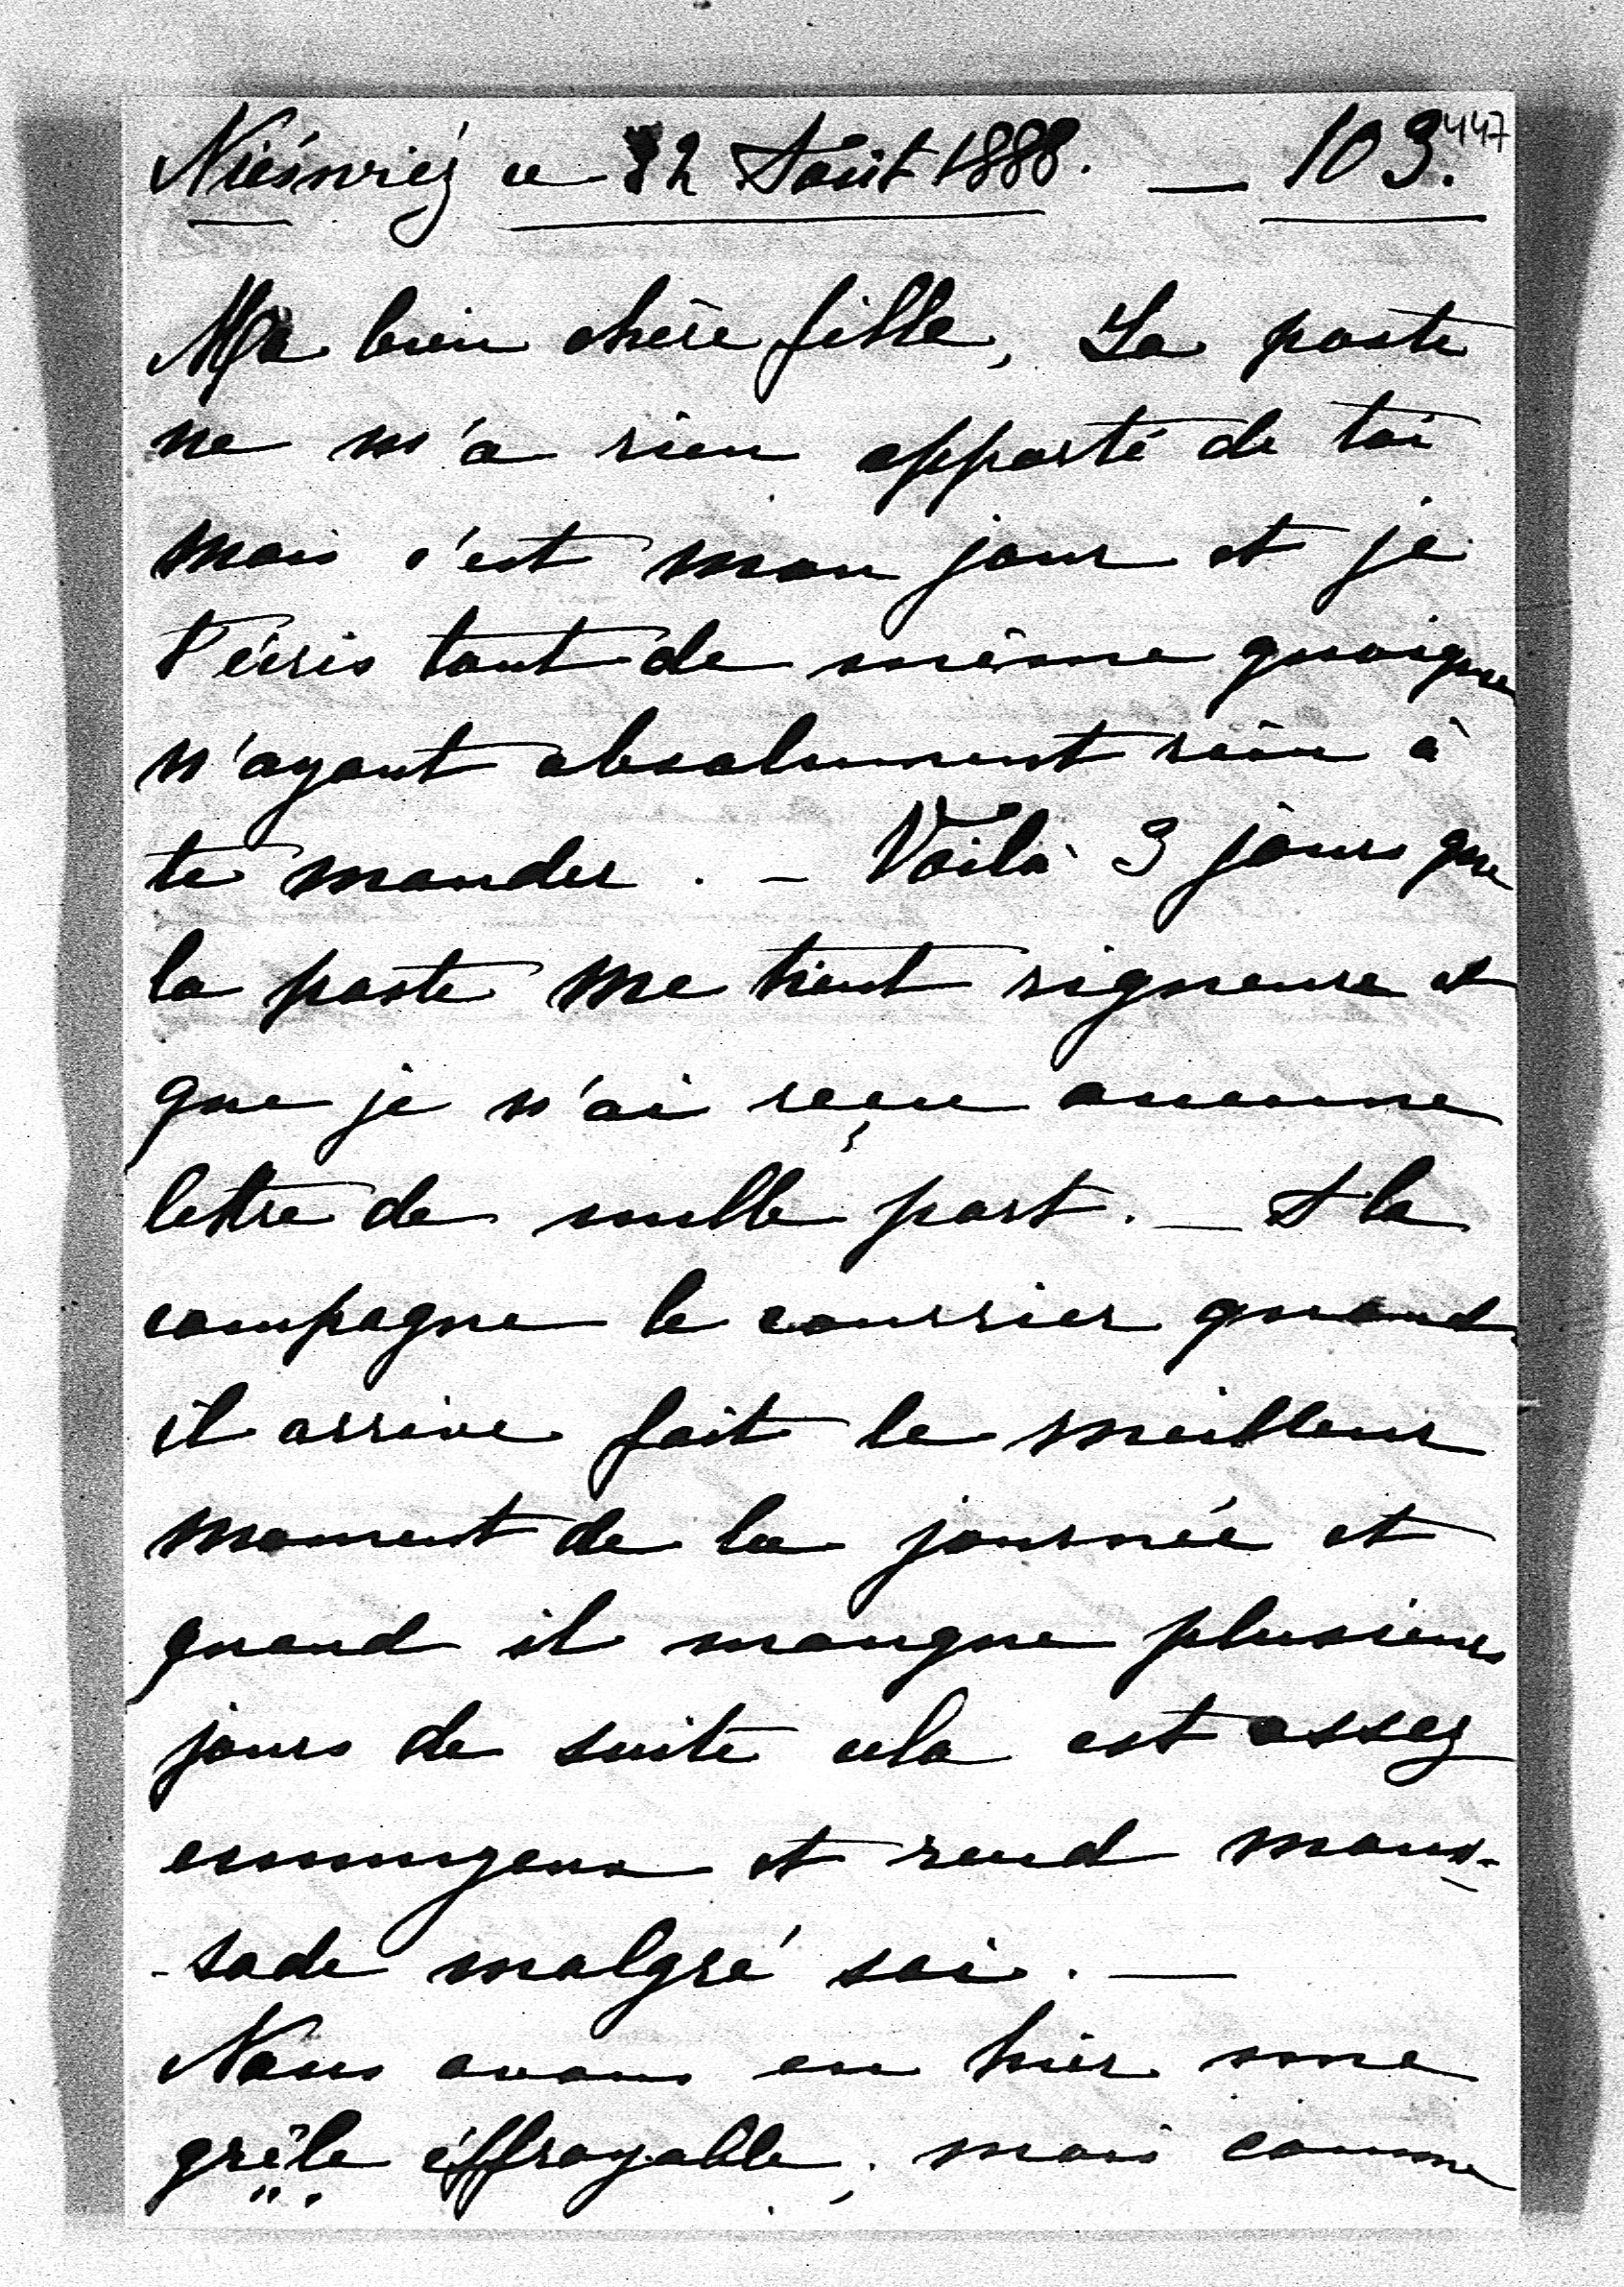 Nieświéz ce 12 Août 1888. — 103. 447
Ma bien chère fille, La poste
ne m'a rien apporté de toi
mais c'est mon jour et je
t'écris tout de même quoique
n'ayant absolument rien à
te mander. — Voilà 3 jours que
la poste me tient rigueure et
que je n'ai reçu aucune
lettre de nulle part. — A la
campagne le courrier quand
il arrive fait le meilleur
moment de la journée et
quand il manque plusieurs
jours de suite cela est assez
ennuyeux et rend maus-
-sade malgré soi. —
Nous avons eu hier une
grêle éffroyable, mais comme